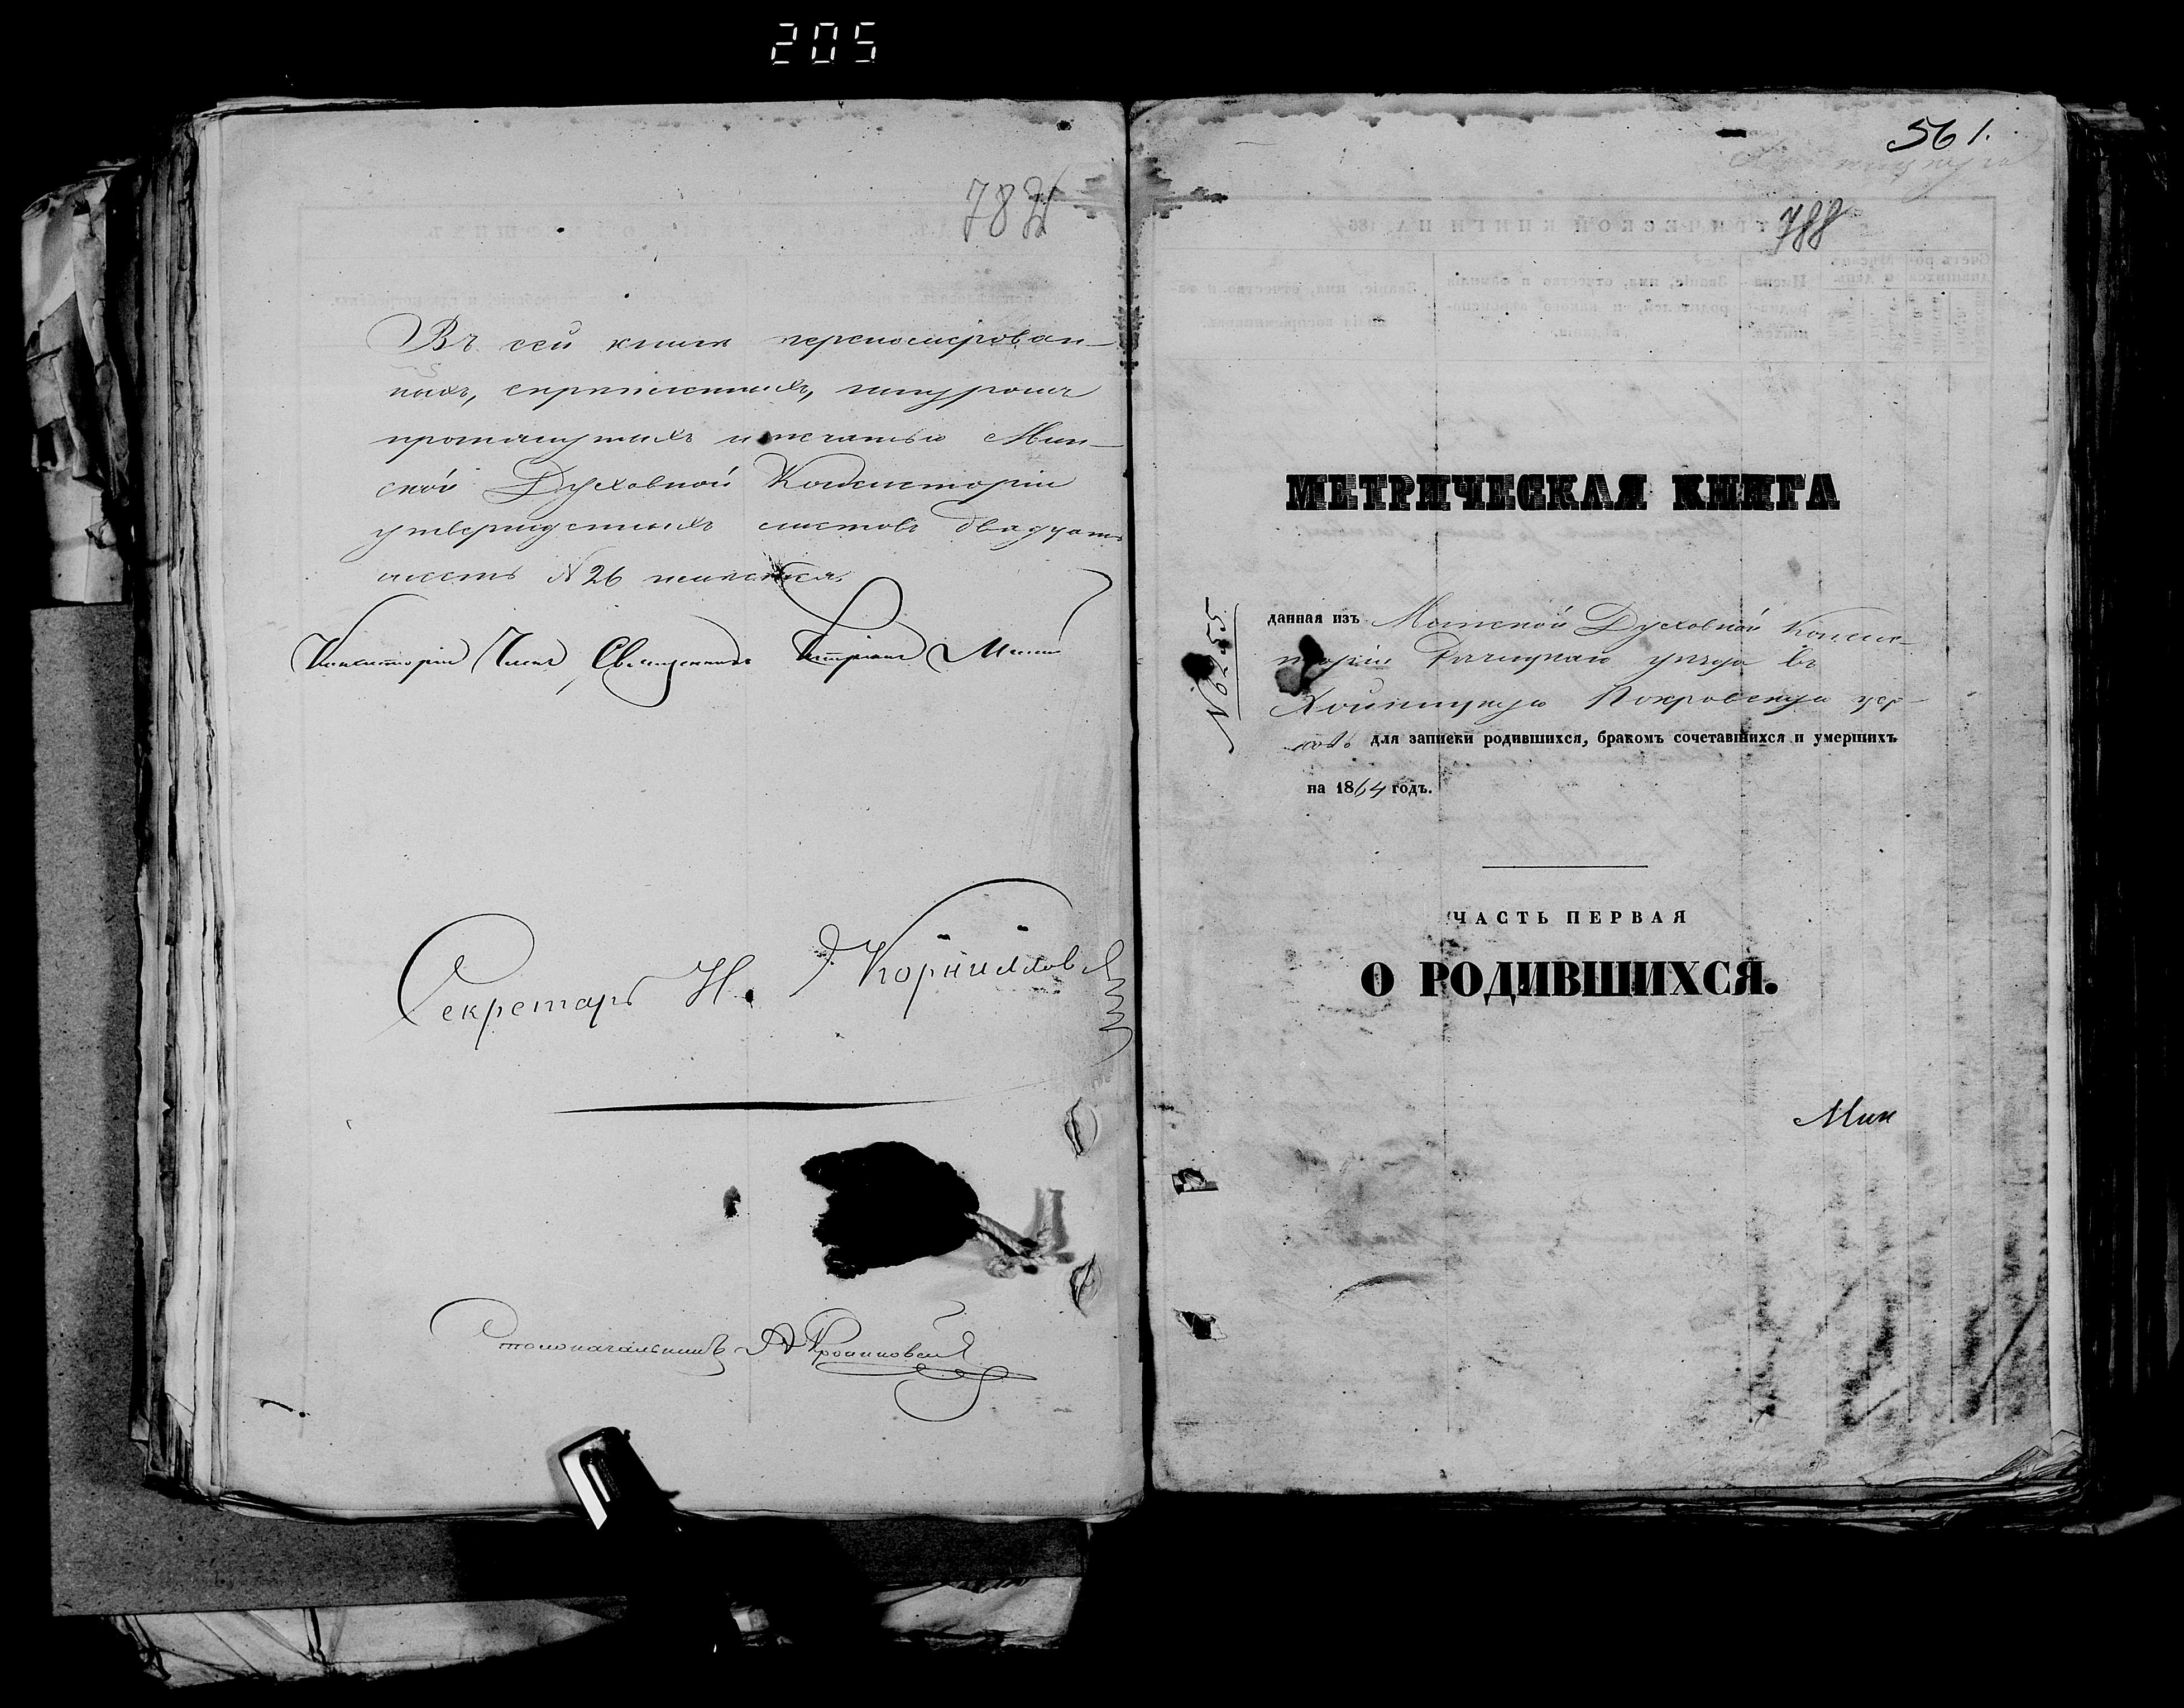 205
Въ сей книгѣ перенумерован-
ныхъ, скрѣпленныхъ, шнуромъ
протянутыхъ и печатью Мин-
ской Духовной Консисторіи
утвержденныхъ листовъ двадцать
шесть N 26 имѣется
Консисторіи Членъ Священникъ
Секретарь Н. Корниловъ
Столоначальникъ А
561.
788
МЕТРИЧЕСКАЯ КНИГА
N 6255
данная изъ Минской Духовной Консис-
торіи Рѣчицкаго уѣзда въ
Хойницкую Покровскую цер-
ковь для записки родившихся, бракомъ сочетавшихся и умершихъ
на 1864 годъ.
ЧАСТЬ ПЕРВАЯ
О РОДИВШИХСЯ.
Мин